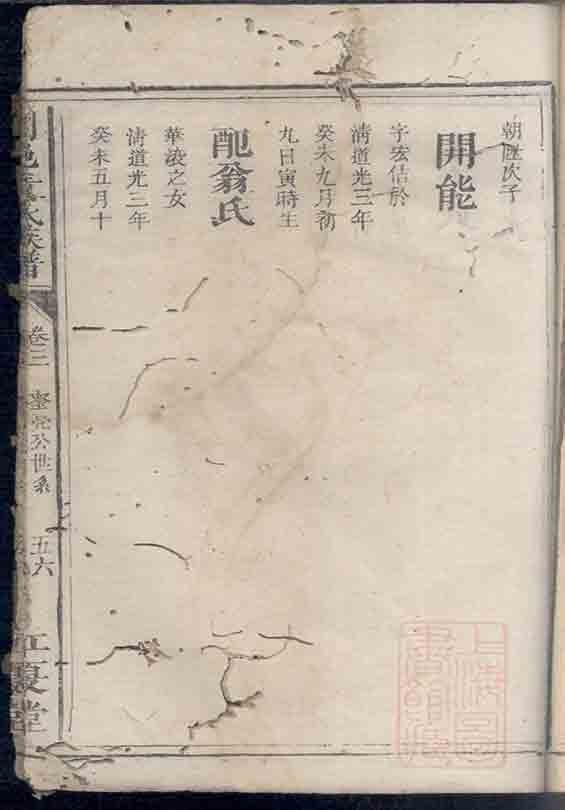 朝陞次子
開能
字宏佶於
清道光三年
癸未九月初
九日寅時生
配翁氏
華淩之女
清道光三年
癸未五月十
氏族譜
卷三
公世系
五六
江夏堂
上海圖
書館藏